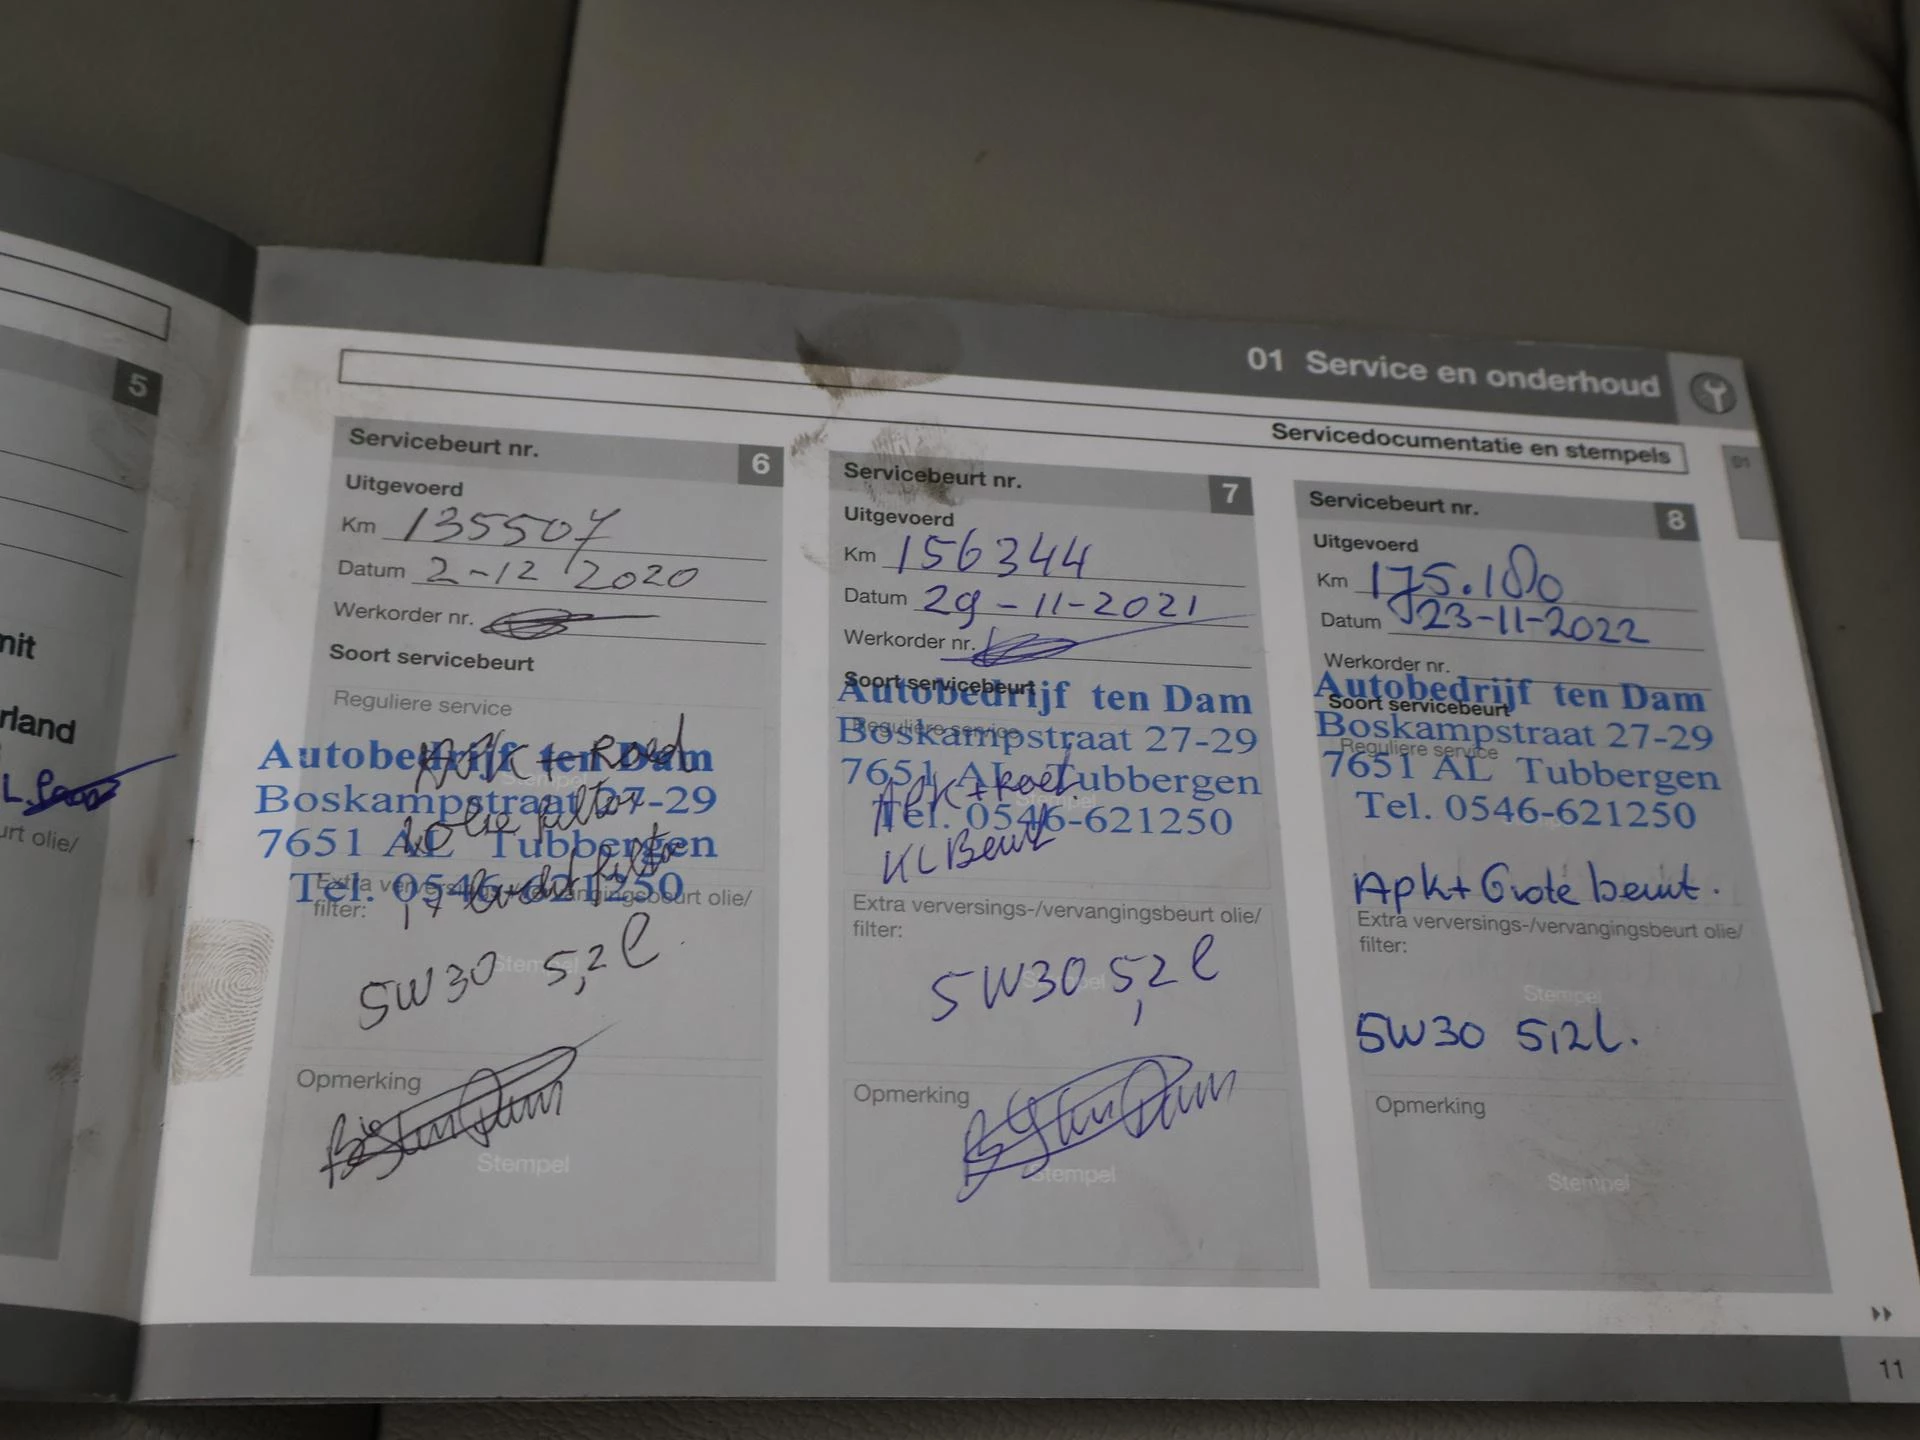 5
nit
rland
L.
urt olie/
01 Service en onderhoud
Servicedocumentatie en stempels
01
Servicebeurt nr. 6
Uitgevoerd
Km 135507
Datum 2-12 2020
Werkorder nr.
Soort servicebeurt
Reguliere service
Autobedrijf ten Dam
Boskampstraat 27-29
7651 AL Tubbergen
Tel. 0546-621250
Stempel
APK + Roet
olie filter
filter
Extra verversings-/vervangingsbeurt olie/
filter:
Stempel
5W30 5,2 l
Opmerking
Stempel
Servicebeurt nr. 7
Uitgevoerd
Km 156344
Datum 29-11-2021
Werkorder nr.
Soort servicebeurt
Autobedrijf ten Dam
Reguliere service
Boskampstraat 27-29
7651 AL Tubbergen
APK + Roet
Stempel
Tel. 0546-621250
KL Beurt
Extra verversings-/vervangingsbeurt olie/
filter:
Stempel
5W30 5,2 l
Opmerking
Stempel
Servicebeurt nr. 8
Uitgevoerd
Km 175.180
Datum 23-11-2022
Werkorder nr.
Autobedrijf ten Dam
Soort servicebeurt
Boskampstraat 27-29
Reguliere service
7651 AL Tubbergen
Tel. 0546-621250
Apk + Grote beurt.
Extra verversings-/vervangingsbeurt olie/
filter:
Stempel
5W30 5,2l.
Opmerking
Stempel
11